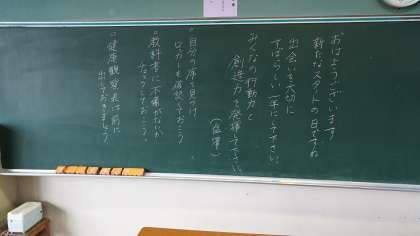 おはようございます
新たなスタートの日ですね
出会いを大切に
すばらしい一年にして下さい。
みんなの行動力と
創造力を発揮して下さい
○自分の席を見つけ
ロッカーも確認しておこう
○教科書に不備がないか
チェックしておこう。
○健康観察表は前に
出しておきましょう